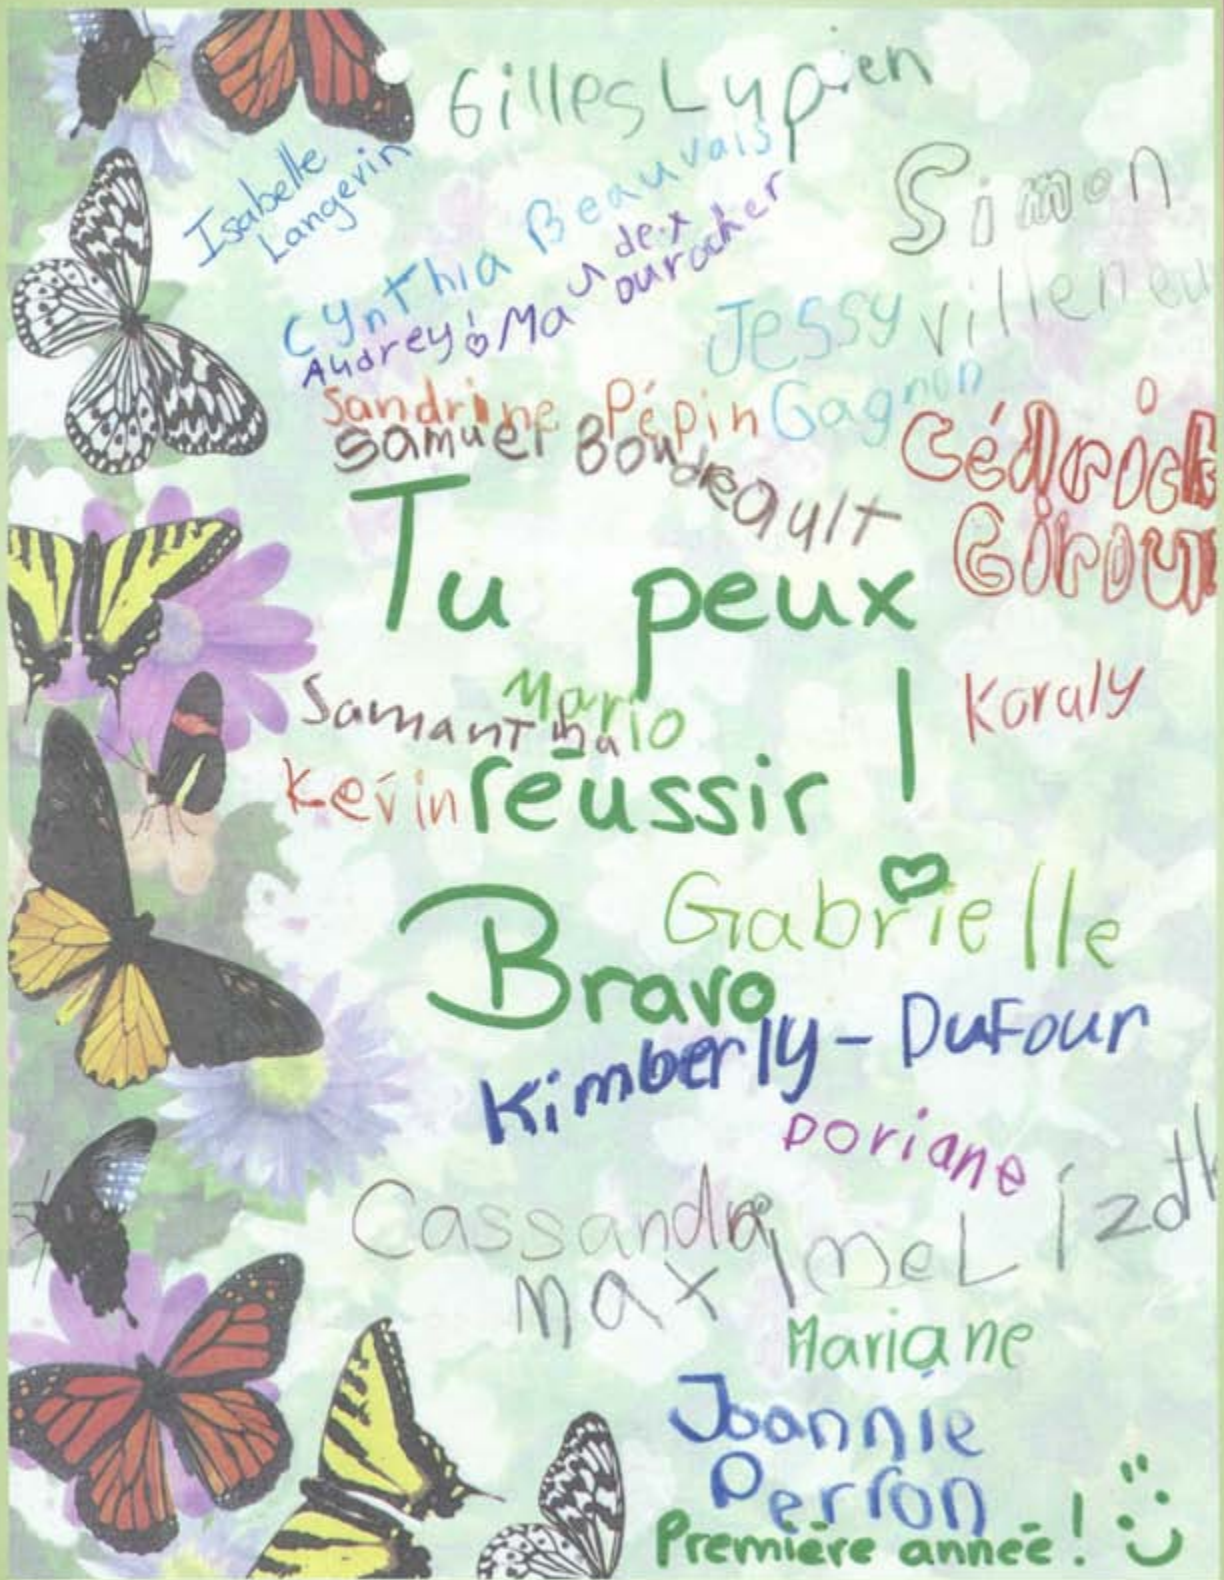 Gilles Lupien
Isabelle
Langevin
Cynthia Beauvais
Simon
Audrey! Maude.x
Durocher
Jessy
Villeneu
Sandrine Pépin
Gagnon
Samuel Boudreault
Cédrick
Girou
Tu peux
Samantha
Mario
Koraly
Kevin
réussir !
Gabrielle
Bravo
Kimberly - DuFour
Doriane
Cassandra
Mariane
Joannie
Perron
Première année !